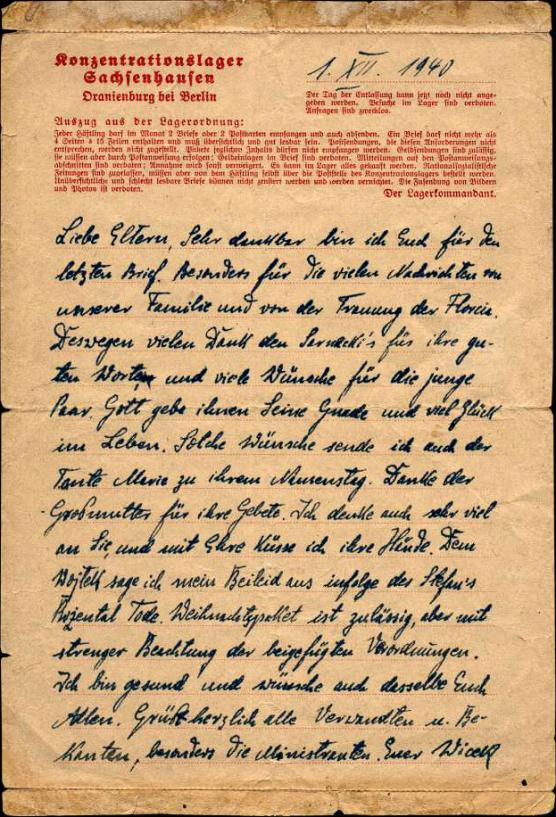 Konzentrationslager
Sachsenhausen
Oranienburg bei Berlin
1. XII. 1940
Der Tag der Entlassung kann jetzt noch nicht ange-
geben werden. Besuche im Lager sind verboten.
Anfragen sind zwecklos.
Auszug aus der Lagerordnung:
Jeder Häftling darf im Monat 2 Briefe oder 2 Postkarten empfangen und auch absenden. Ein Brief darf nicht mehr als
4 Seiten à 15 Zeilen enthalten und muß übersichtlich und gut lesbar sein. Postsendungen, die diesen Anforderungen nicht
entsprechen, werden nicht zugestellt. Pakete jeglichen Inhalts dürfen nicht empfangen werden. Geldsendungen sind zulässig,
sie müssen aber durch Postanweisung erfolgen; Geldeinlagen im Brief sind verboten. Mitteilungen auf den Postanweisungs-
abschnitten sind verboten; Annahme wird sonst verweigert. Es kann im Lager alles gekauft werden. Nationalsozialistische
Zeitungen sind zugelassen, müssen aber von dem Häftling selbst über die Poststelle des Konzentrationslagers bestellt werden.
Unübersichtliche und schlecht lesbare Briefe können nicht zensiert werden und werden vernichtet. Die Zusendung von Bildern
und Photos ist verboten.
Der Lagerkommandant.
Liebe Eltern, Sehr dankbar bin ich Euch für den
letzten Brief. Besonders für die vielen Nachrichten von
unserer Familie und von der Trauung der
Deswegen vielen Dank den für ihre gu-
ten Worten und viele Wünsche für die junge
Paar. Gott gebe ihnen Seine Gnade und viel Glück
im Leben. Solche Wünsche sende ich auch der
Tante Marie zu ihrem Namenstag. Danke der
Großmutter für ihre Gebete. Ich denke auch sehr viel
an Sie, und mit Ehre Küsse ich ihre Hände. Dem
Wojtek sage ich mein Beileid aus infolge des Stefan's
Tode. Weihnachtspaket ist zulässig, aber mit
strenger Beachtung der beigefügten Verordnungen.
Ich bin gesund und wünsche auch dasselbe Euch
Allen. Grüßt herzlich alle Verwandten u. Be-
kanten, besonders die Ministranten. Euer Wicek